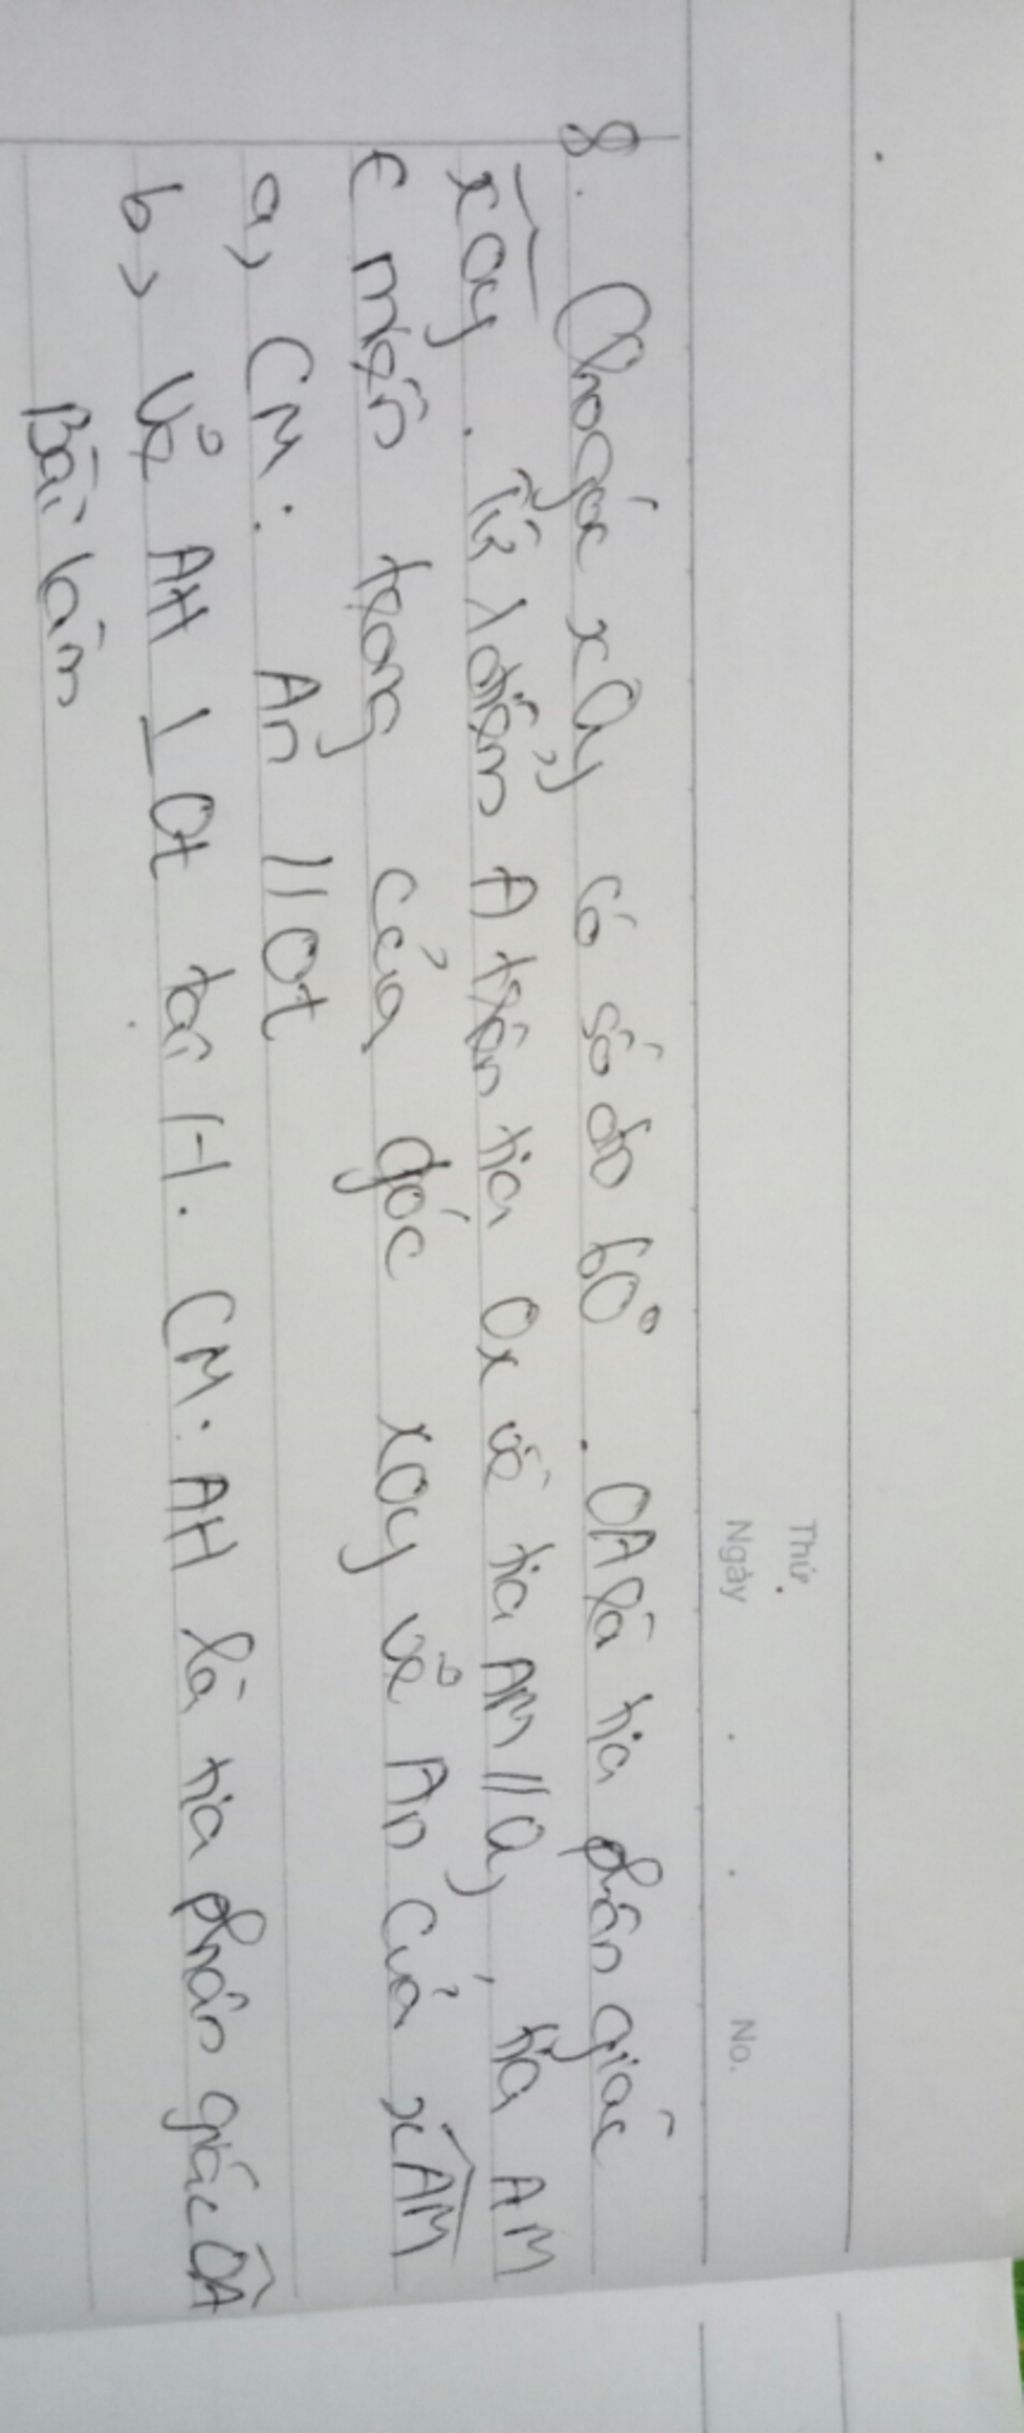 Thứ
Ngày
No.
8. Cho góc xOy có số đo 60°. OA là tia phân giác
xOy. Từ 1 điểm A trên tia Ox vẽ tia AM // Oy, tia AM
∈ miền trong của góc xOy vẽ An của xAM
a, CM: An // Ot
b, Vẽ AH ⊥ Ot tại H. CM: AH là tia phân giác OA
Bài làm